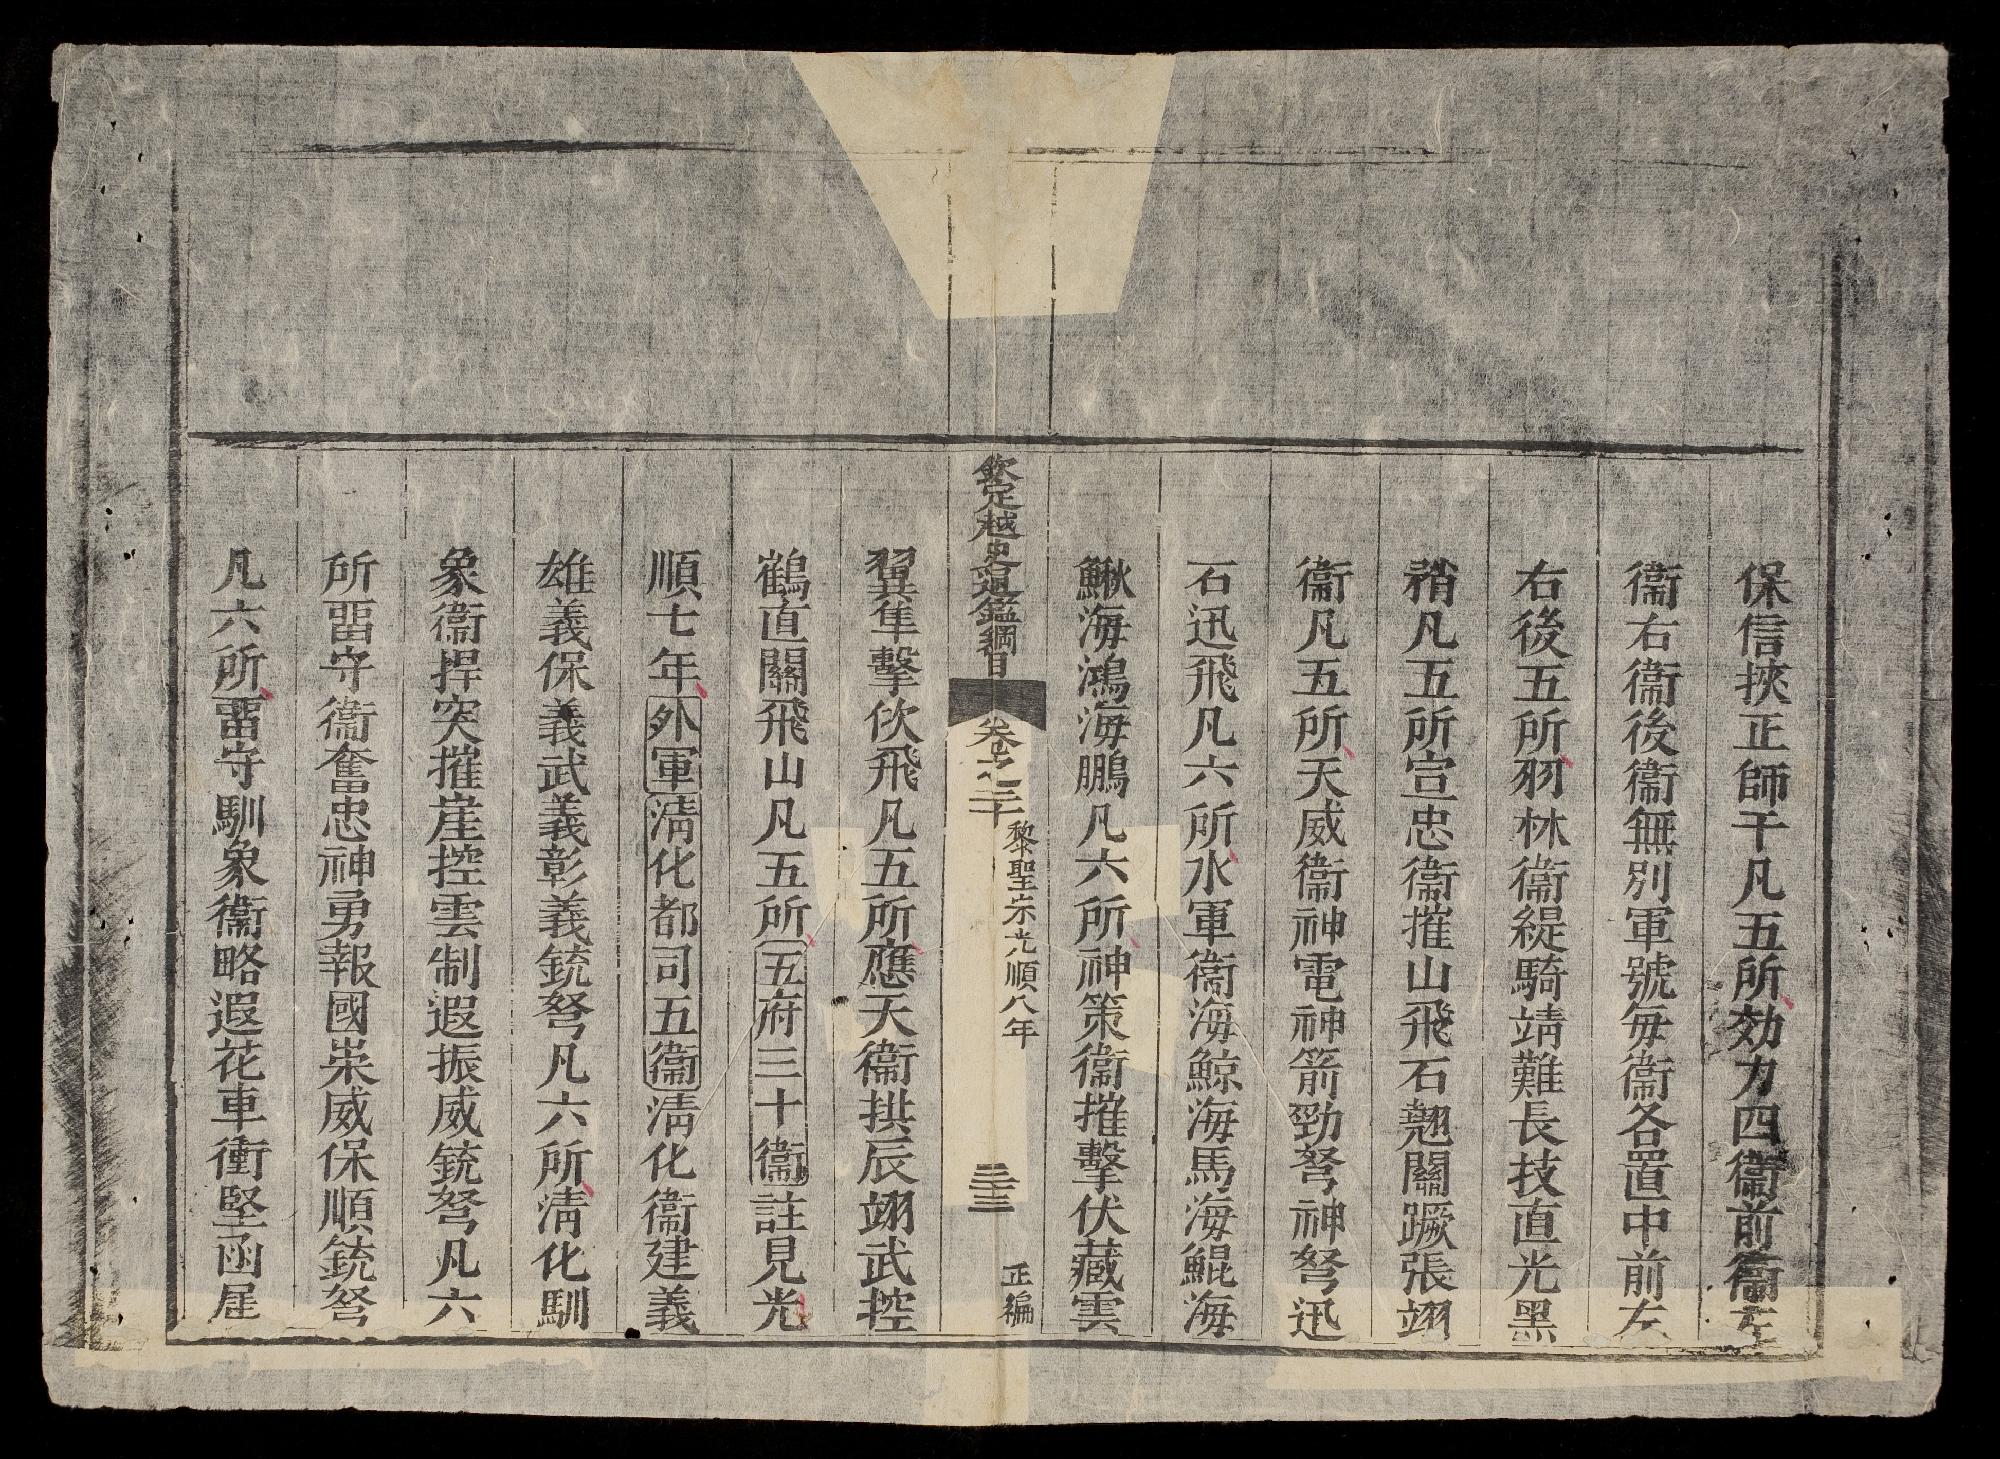 保信挾正師干凡五所効力四衞前衞左
衞右衞後衞無別軍號每衞各置中前左
右後五所羽林衞緹騎靖難長技直光黑
矟凡五所宣忠衞摧山飛石翹關蹶張翊
衞凡五所天威衞神電神箭勁弩神弩迅
石迅飛凡六所水軍衞海鯨海馬海鯤海
鰍海鴻海鵬凡六所神策衞摧擊伏藏雲
欽定越史通鑑綱目
卷之二十
黎聖宗光順八年
三十三
正編
翼隼擊佽飛凡五所應天衞拱辰翊武控
鶴直關飛山凡五所五府三十衞註見光
順七年外軍淸化都司五衞淸化衞建義
雄義保義武義彰義銃弩凡六所淸化馴
象衞捍突摧崖控雲制遐振威銃弩凡六
所畱守衞奮忠神勇報國崇威保順銃弩
凡六所畱守馴象衞略遐花車衝堅函崖